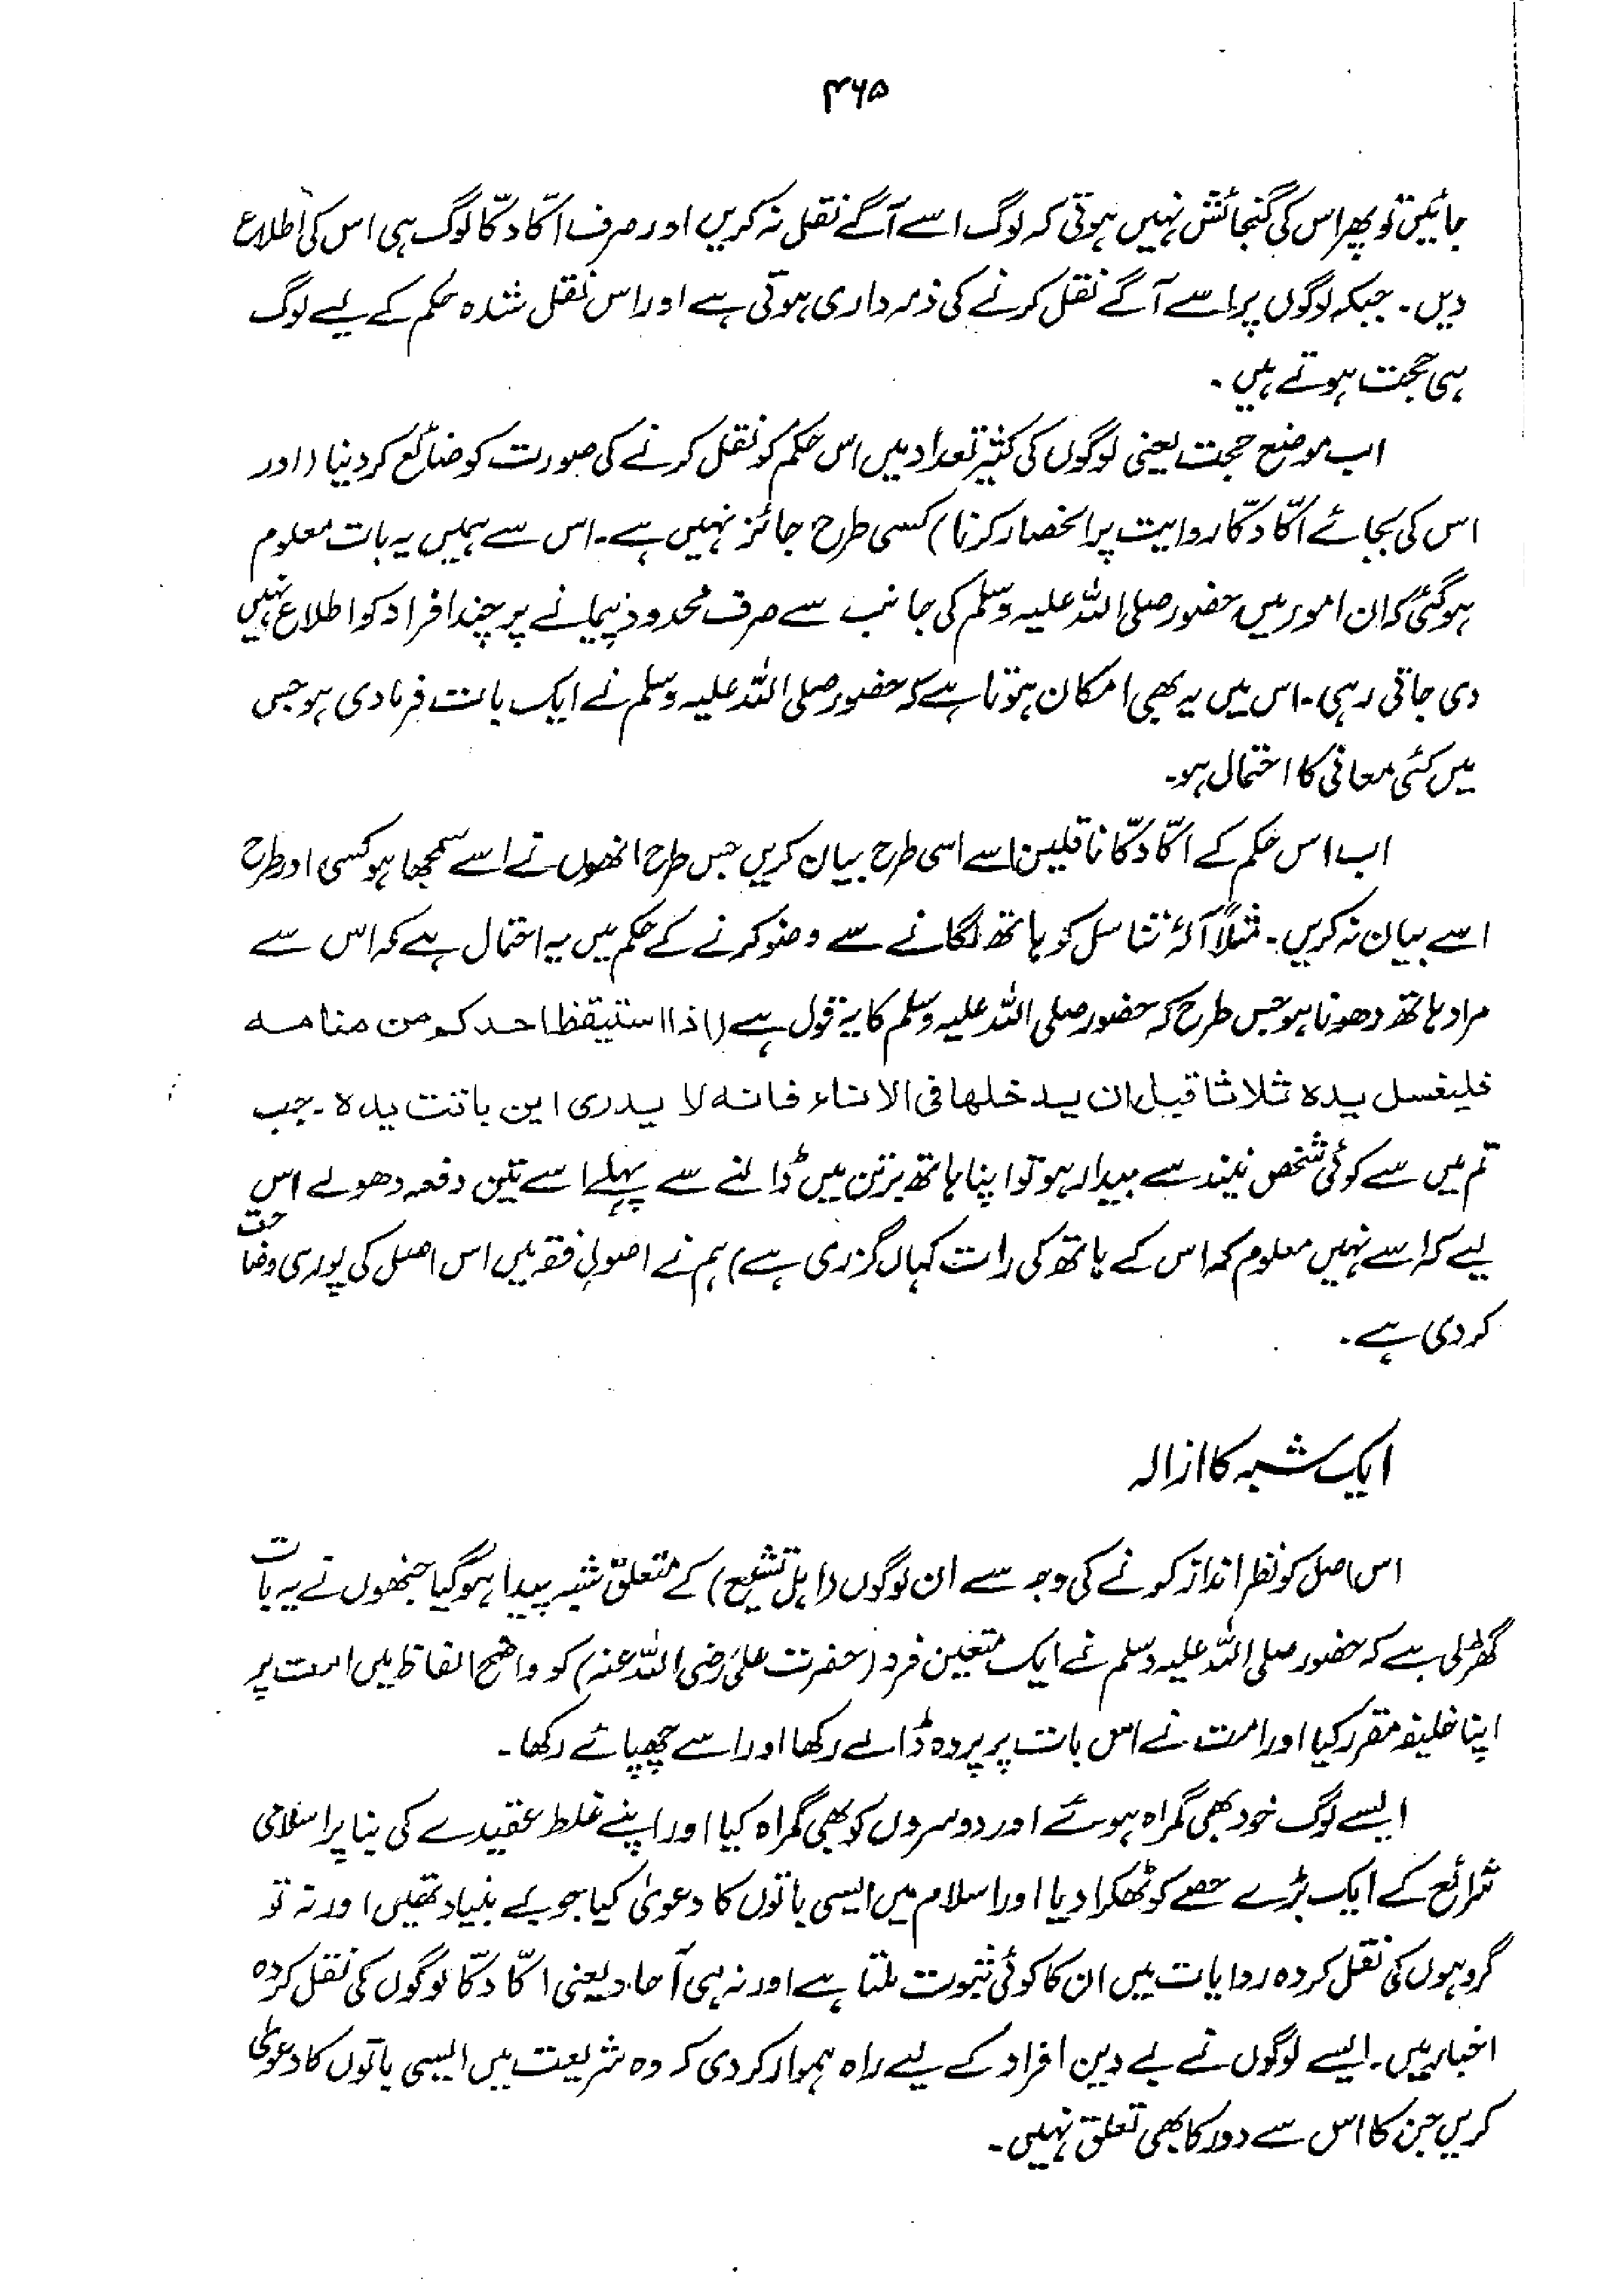 ۴۶۵
جائیں تو پھر اس کی گنجائش نہیں ہوتی کہ لوگ اسے آگے نقل نہ کریں اور صرف اکّا دکّا لوگ ہی اس کی اطلاع
دیں۔ جبکہ لوگوں پر اسے آگے نقل کرنے کی ذمہ داری ہوتی ہے اور اس نقل شدہ حکم کے لیے لوگ
ہی حجت ہوتے ہیں۔
اب موضع حجت یعنی لوگوں کی کثیر تعداد میں اس حکم کو نقل کرنے کی صورت کو ضائع کر دینا (اور
اس کی بجائے اکّا دکّا روایت پر انحصار کرنا) کسی طرح جائز نہیں ہے۔ اس سے ہمیں یہ بات معلوم
ہو گئی کہ ان امور میں حضور صلی اللہ علیہ وسلم کی جانب سے صرف محدود پیمانے پر چند افراد کو اطلاع نہیں
دی جاتی رہی۔ اس میں یہ بھی امکان ہوتا ہے کہ حضور صلی اللہ علیہ وسلم نے ایک بات فرما دی ہو جس
میں کئی معانی کا احتمال ہو۔
اب اس حکم کے اکّا دکّا ناقلین اسے اسی طرح بیان کریں جس طرح انھوں نے اسے سمجھا ہو کسی اور طرح
اسے بیان نہ کریں۔ مثلاً آلۂ تناسل کو ہاتھ لگانے سے وضو کرنے کے حکم میں یہ احتمال ہے کہ اس سے
مراد ہاتھ دھونا ہو جس طرح کہ حضور صلی اللہ علیہ وسلم کا یہ قول ہے (اذا استیقظ احدکم من منامہ
فلیغسل یدہ ثلاثا قبل ان یدخلھا فی الاناء فانہ لا یدری این باتت یدہ۔ جب
تم میں سے کوئی شخص نیند سے بیدار ہو تو اپنا ہاتھ برتن میں ڈالنے سے پہلے اسے تین دفعہ دھولے اس
لیے کہ اسے نہیں معلوم کہ اس کے ہاتھ کی رات کہاں گزری ہے) ہم نے اصولِ فقہ میں اس اصل کی پوری وضاحت
کر دی ہے۔
ایک شبہ کا ازالہ
اس اصل کو نظر انداز کرنے کی وجہ سے ان لوگوں (اہل تشیع) کے متعلق شبہ پیدا ہو گیا جنھوں نے یہ بات
گھڑلی ہے کہ حضور صلی اللہ علیہ وسلم نے ایک متعین فرد (حضرت علی رضی اللہ عنہ) کو واضح الفاظ میں امت پر
اپنا خلیفہ مقرر کیا اور امت نے اس بات پر پردہ ڈالے رکھا اور اسے چھپائے رکھا۔
ایسے لوگ خود بھی گمراہ ہوئے اور دوسروں کو بھی گمراہ کیا اور اپنے غلط عقیدے کی بنا پر اسلامی
شرائع کے ایک بڑے حصے کو ٹھکرا دیا اور اسلام میں ایسی باتوں کا دعویٰ کیا جو بے بنیاد تھیں اور نہ تو
گروہوں کی نقل کردہ روایات میں ان کا کوئی ثبوت ملتا ہے اور نہ ہی آحاد یعنی اکّا دکّا لوگوں کی نقل کردہ
اخبار میں۔ ایسے لوگوں نے بے دین افراد کے لیے راہ ہموار کر دی کہ وہ شریعت میں ایسی باتوں کا دعویٰ
کریں جن کا اس سے دور کا بھی تعلق نہیں۔